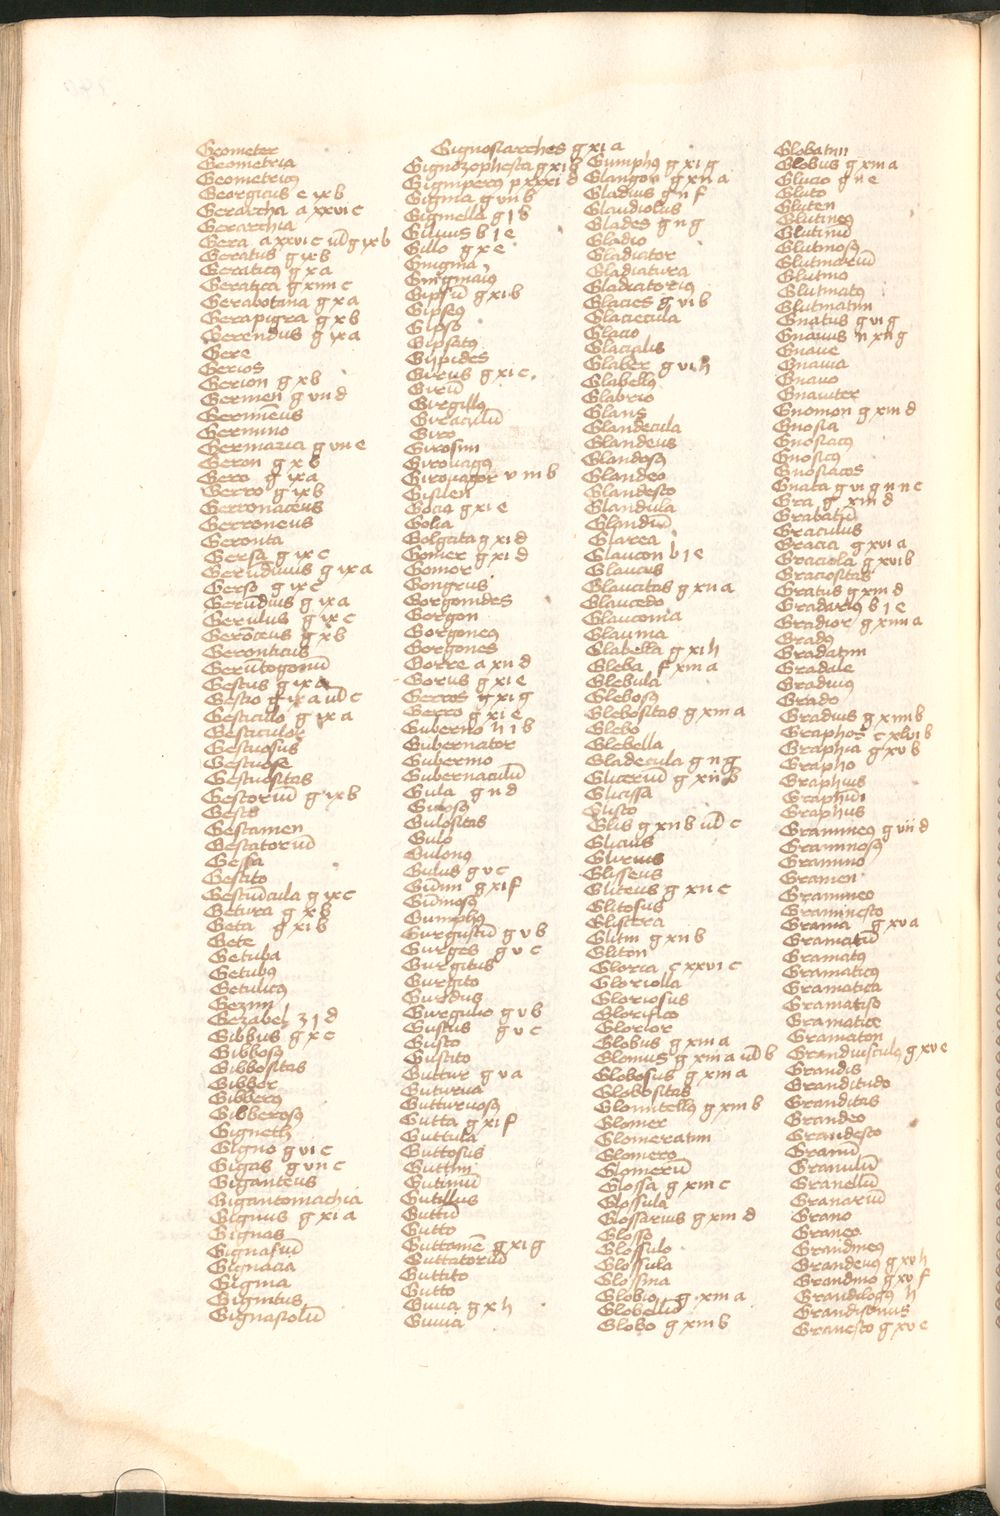 Geometer
Geometria
Geometricus
Georgicus e ix b
Gerarcha a xxvi c
Gerarchia
Gera a xxvi c uł g ix b
Geratus g ix b
Geraticus g x a
Geratica g xiiii c
Gerabotana g x a
Gerapigra g x b
Gerendus g ix a
Gere
Gerios
Gerion g x b
Germen g vii d
Germineus
Germino
Germania g vii e
Geron g x b
Gero g ix a
Gerro g ix b
Gerronaceus
Gerroneus
Geronta
Gersa g ix c
Gerundivus g ix a
Gerso g ix c
Gerundius g ix a
Gerulus g ix c
Geronceus g x b
Geronticus
Geruntogonum
Gestus g ix a
Gestio g ix a uł c
Gesticulo g ix a
Gesticulor
Gestuosus
Gestuose
Gestuositas
Gestorium g ix b
Gests
Gestamen
Gestatorium
Gessa
Gestito
Gestiuncula g ix c
Getura g x b
Geta g xi b
Gete
Getuba
Getubus
Getulicus
Gezim
Gezabel z i d
Gibbus g x c
Gibbosus
Gibbositas
Gibber
Gibberus
Gibberosus
Gigneth
Gigno g vi c
Gigas g vii c
Giganteus
Gigantomachia
Gignus g xi a
Gignas
Gignasium
Gignacia
Gigma
Gignitus
Gignasiolum
Gignosiarches g xi a
Gignozophesta g xi b
Gigniperus p xxxi d
Gigma g vii b
Gignella g i b
Gilvus b i e
Gillo g x e
Gingina
Ginginaius
Gipsum g xi b
Gipseus
Gipso
Gipsatus
Gipides
Girus g xi c
Girum
Girgillus
Giraculum
Giro
Girosim
Girovagus
Girovagor v iiii b
Gislen
Gocia g xi e
Golia
Golgata g xi d
Gomer g xi d
Gomor
Gongrus
Gorgonides
Gorgon
Gorgoneus
Gorgones
Gorre a xii d
Gorus g xi e
Gerros g xi g
Gerro g xi e
Guberno h i b
Gubernator
Gubernio
Gubernaculum
Gula g ii d
Gulosus
Gulositas
Gulo
Gulonus
Gulus g v c
Gummi g xi f
Gummosus
Gumphus
Gurgustium g v b
Gurges g v c
Gurgitus
Gurgito
Gurdus
Gurgulio g v b
Gustus g v c
Gusto
Gustito
Guttur g v a
Guturna
Gutturnosus
Gutta g xi f
Guttula
Guttosus
Guttim
Gutinium
Gutillus
Guttum
Gutto
Guttamen g xi g
Guttatorium
Guttito
Gutto
Guvia g x h
Guvia
Gumphus g xi g
Glangor g xii a
Gladius g ii f
Glaudiolus
Glades g ii g
Gladio
Gladiator
Gladiatura
Gladiatorius
Glacies g vi b
Glaciecula
Glacio
Glacialis
Glaber g vi h
Glabellus
Glabrio
Glans
Glandecula
Glandeus
Glandosus
Glandeo
Glandesco
Glandula
Glandium
Glarea
Glaucon b i e
Glaucus
Glaucitas g xii a
Glaucedo
Glaucoma
Glauma
Glabella g xi h
Gleba f xiii a
Glebula
Glebosus
Glebositas g xiii a
Glebo
Glebella
Gladecula g ii g
Glicerium g xii b
Glicissa
Glisco
Glis g xii b uł c
Glicius
Glirius
Glisseus
Gliteus g xii c
Glitosus
Gliscera
Glitin g xii b
Gliton
Gloria c xxvi c
Gloriolla
Gloriosus
Glorifico
Glorior
Globus g xiii a
Glomus g xiii a uł b
Globosus g xiii a
Globositas
Glomicellus g xiii b
Glomer
Glomeratim
Glomero
Glomerum
Glossa g xiii c
Glossula
Glossarius g xiii d
Glosso
Glossulo
Glossula
Glossina
Globio g xiii a
Globellum
Globo g xiii b
Globatim
Globus g xiii a
Glucio g ii e
Gluto
Gluten
Glutineus
Glutinum
Glutinosus
Glutinarium
Glutino
Glutinatus
Glutinatim
Gnatus g vi g
Gnavus n xii g
Gnave
Gnavia
Gnavo
Gnaviter
Gnomon g xiii d
Gnosia
Gnosiacus
Gnosicus
Gnosiacos
Gnata g vi g n ii c
Gra g xiii d
Grabatum
Graculus
Gracia g xvi a
Graciola g xvi b
Graciositas
Gratus g xiii d
Gradarius b i e
Gradior g xiiii a
Gradus
Gradatim
Gradale
Gradivus
Grado
Gradius g xiiii b
Graphos c xlvi b
Graphia g xv b
Grapho
Graphius
Graphium
Graphus
Gramineus g vii d
Graminosus
Gramino
Gramen
Gramineo
Graminesco
Grama g xv a
Gramatum
Gramatus
Gramaticus
Gramatica
Gramatiso
Gramatice
Gramaton
Grandiusculus g xv e
Grandis
Granditudo
Granditas
Grandeo
Grandesco
Granum
Granulum
Granellum
Granarium
Grano
Graneo
Grandineus
Grandeus g xv h
Grandino g xv f
Grandilocus h
Grandisonus
Granesco g xv e